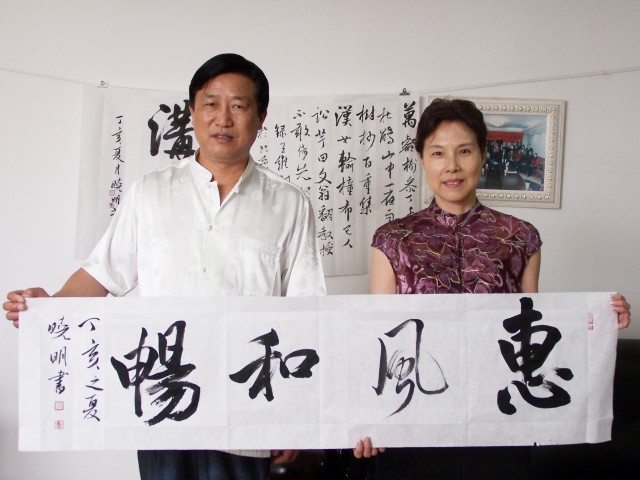 惠風和暢
丁亥之夏
曉明書
萬壑樹參
杜鵑山中一夜雨
樹杪百重泉
漢女輸橦布巴人
訟芋田文翁翻教授
不敢倚先
錄王維
溝
丁亥夏月曉明